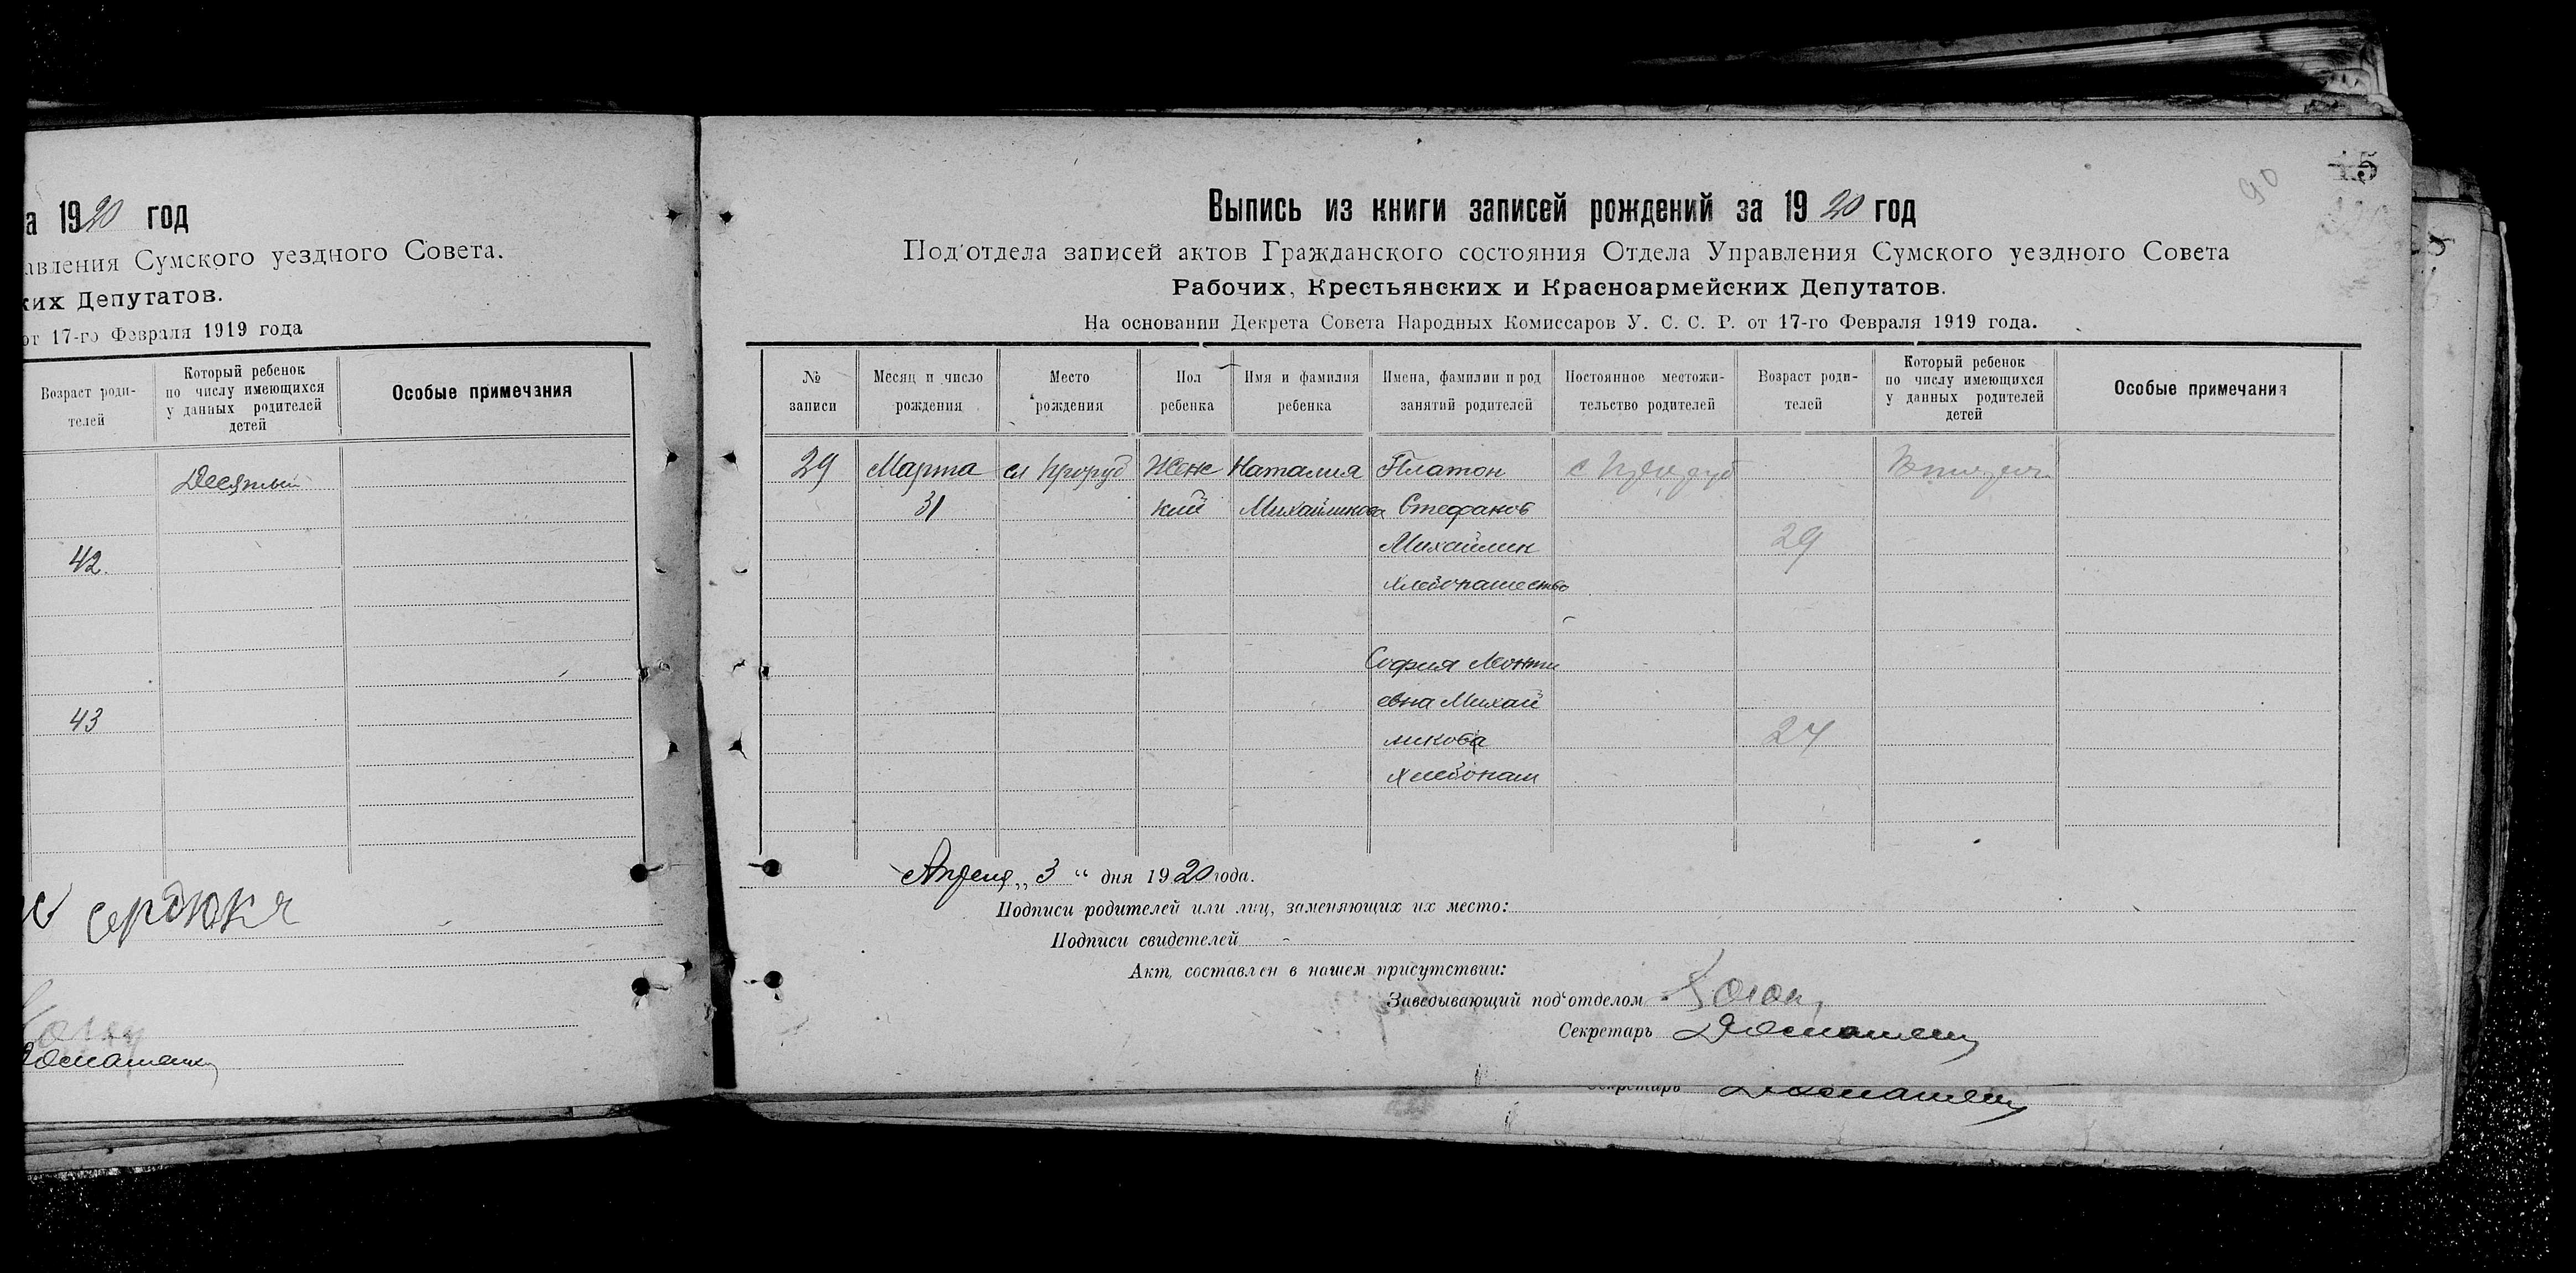 а 1920 год
авления Сумского уездного Совета.
ких Депутатов.
от 17-го Февраля 1919 года
Возраст роди-
телей
Который ребенок
по числу имеющихся
у данных родителей
детей
Особые примечания
Десятый
42.
43
Сердюка
Выпись из книги записей рождений за 1920 год
Под'отдела записей актов Гражданского состояния Отдела Управления Сумского уездного Совета
Рабочих, Крестьянских и Красноармейских Депутатов.
На основании Декрета Совета Народных Комиссаров У. С. С. Р. от 17-го Февраля 1919 года.
№
записи
Месяц и число
рождения
Место
рождения
Пол
ребенка
Имя и фамилия
ребенка
Имена, фамилии и род
занятий родителей
Постоянное местожи-
тельство родителей
Возраст роди-
телей
Который ребенок
по числу имеющихся
у данных родителей
детей
Особые примечания
29 Марта сл Женс Наталия Платон с
31 кий Михайликова Стефанов
Михайлик 29
Хлебопашество
София Леонти
евна Михай
ликова 24
Хлебопаш
Апреля „ 3 “ дня 1920 года.
Подписи родителей или лиц, заменяющих их место:
Подписи свидетелей
Акт, составлен в нашем присутствии:
Заведывающий под'отделом
Секретарь
Секретарь
90